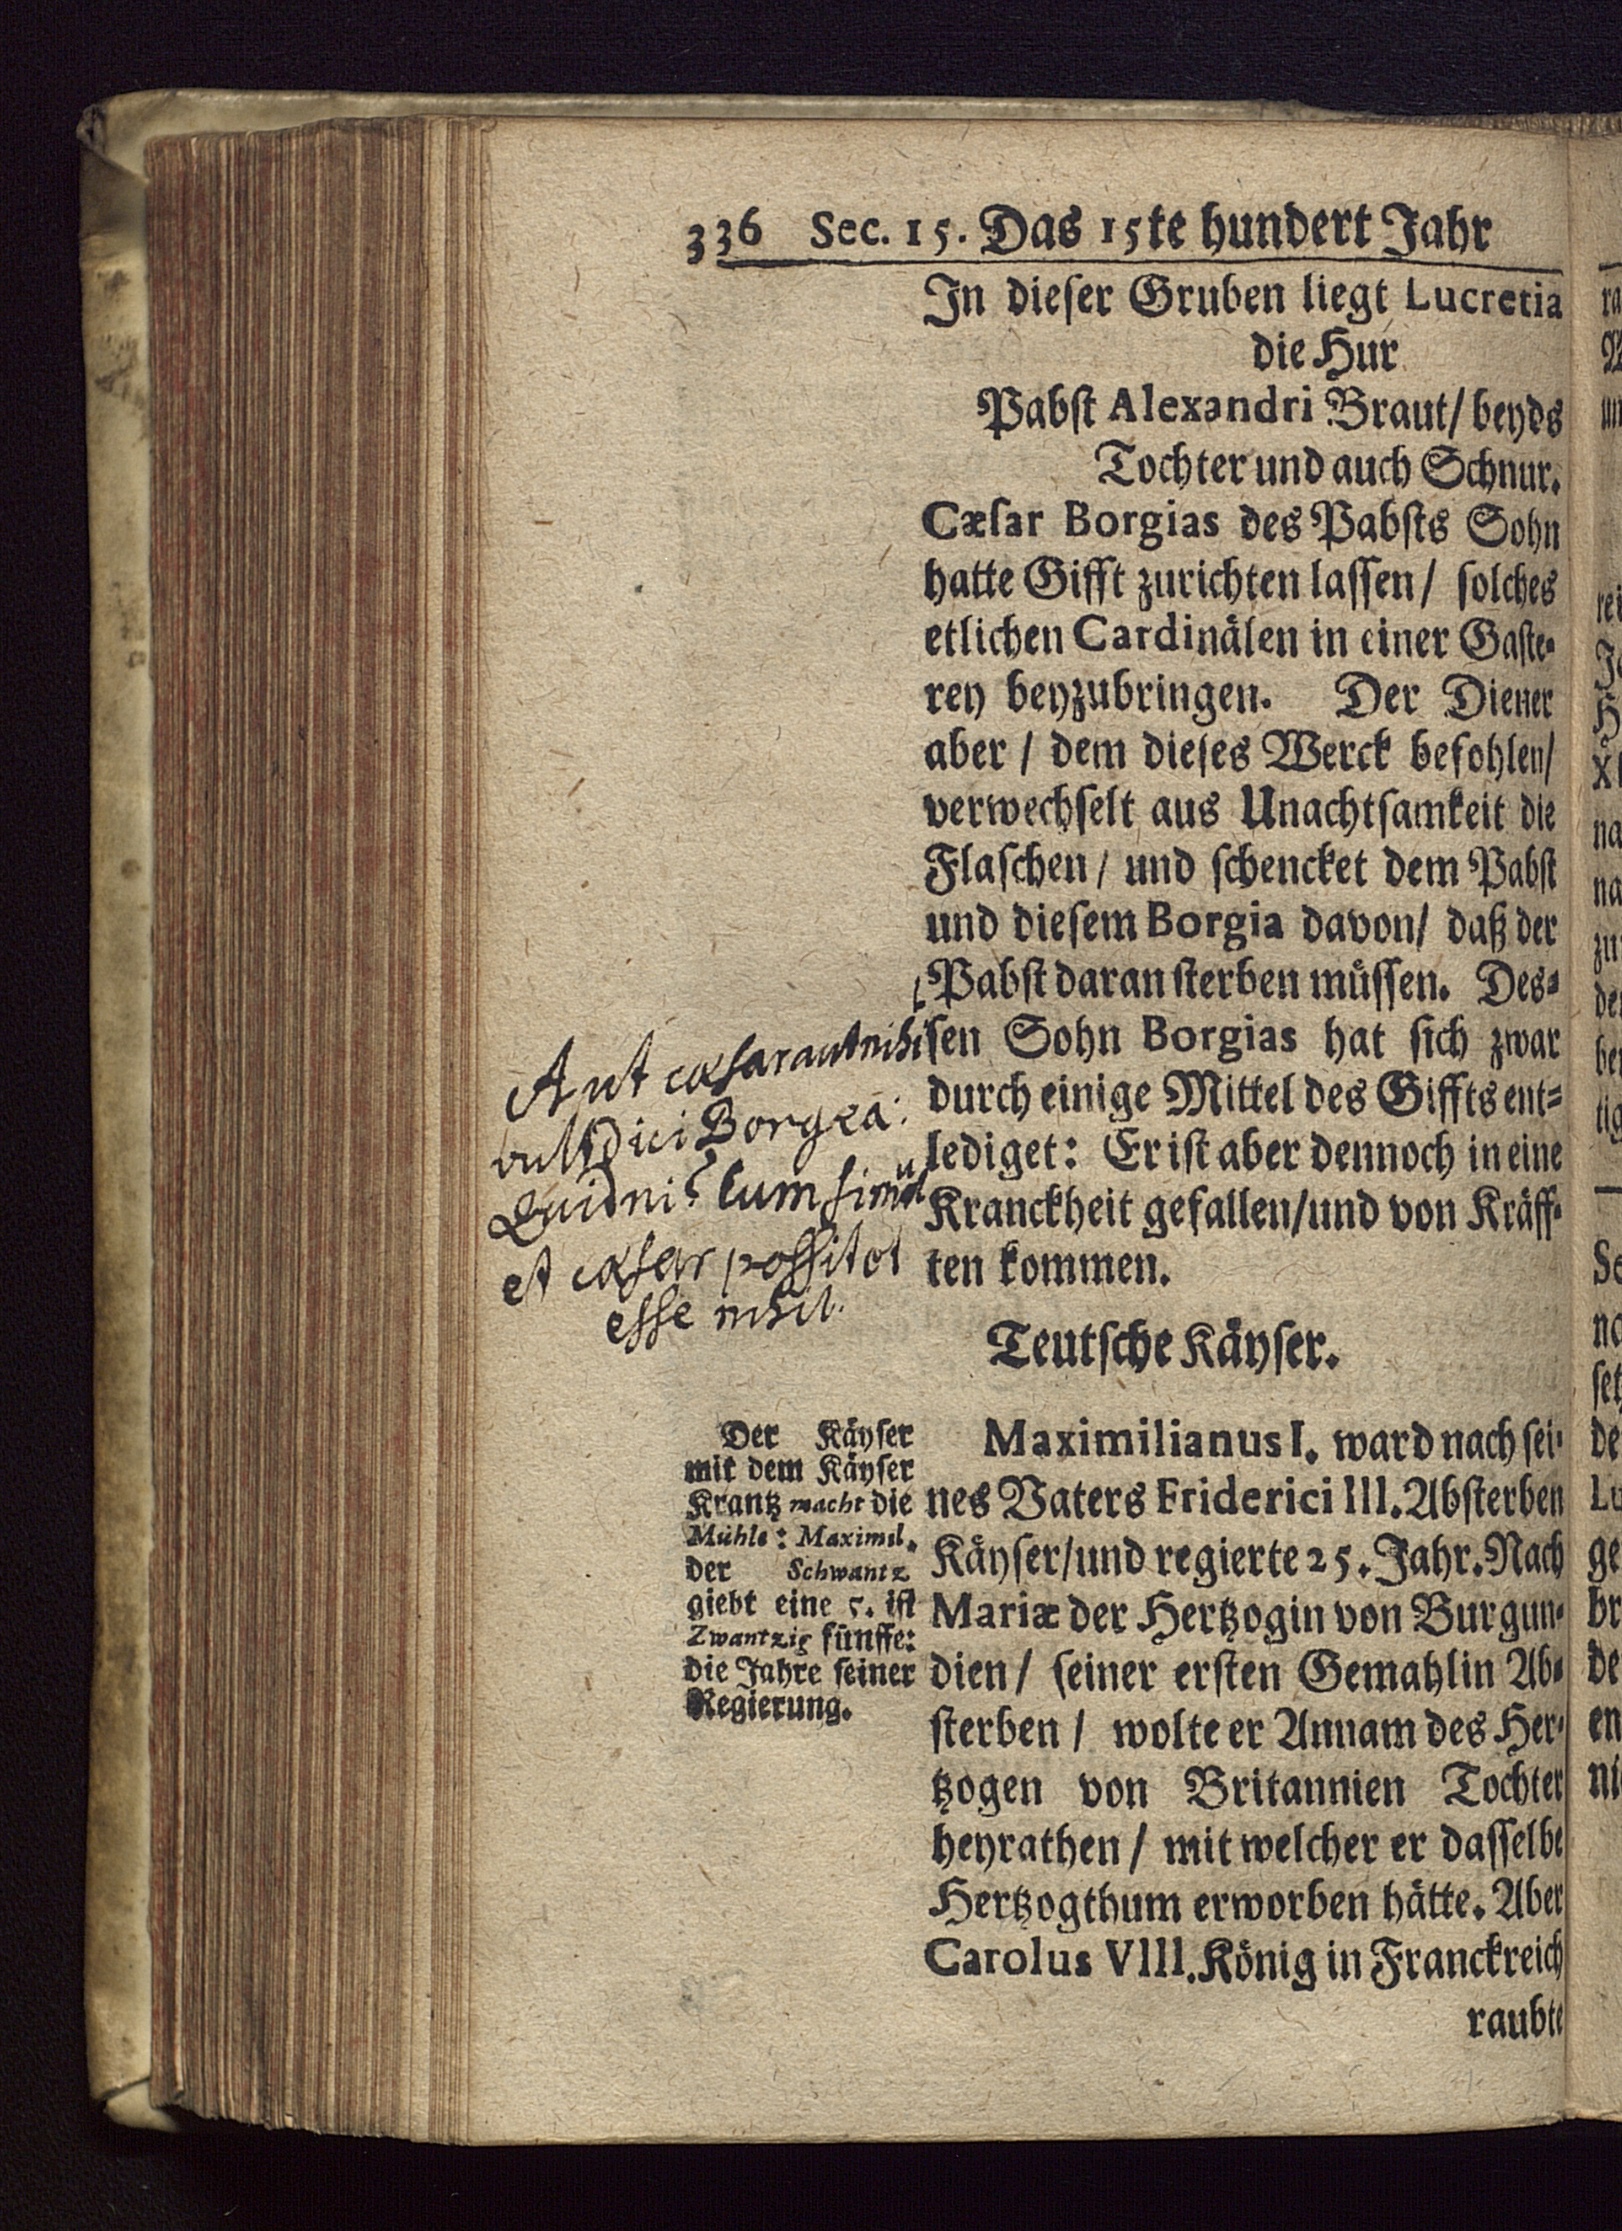 336 Sec. 15. Das 15te hundert Jahr
In dieſer Gruben liegt Lucretia
die Hur
Pabſt Alexandri Braut/ beyds
Tochter und auch Schnur.
Cæſar Borgias des Pabſts Sohn
hatte Gifft zurichten laſſen/ ſolches
etlichen Cardinälen in einer Gaſte-
rey beyzubringen. Der Diener
aber / dem dieſes Werck befohlen/
verwechſelt aus Unachtſamkeit die
Flaſchen / und ſchencket dem Pabſt
und dieſem Borgia davon/ daß der
Pabſt daran ſterben müſſen. Deſ-
ſen Sohn Borgias hat ſich zwar
durch einige Mittel des Giffts ent-
lediget: Er iſt aber dennoch in eine
Kranckheit gefallen/und von Kräff-
ten kommen.
Aut cæſar aut nihil
vult Dici Borgia:
Quidni? Cum ſimul
et cæſar poſſit et
eſſe nihil.
Teutſche Käyſer.
Der Käyſer
mit dem Käyſer
Krantz macht die
Mühle: Maximil.
der Schwantz
giebt eine 5. iſt
Zwantzig fünffe:
die Jahre ſeiner
Regierung.
Maximilianus I. ward nach ſei-
nes Vaters Friderici III. Abſterben
Käyſer/und regierte 25. Jahr. Nach
Mariæ der Hertzogin von Burgun-
dien / ſeiner erſten Gemahlin Ab-
ſterben / wolte er Annam des Her-
tzogen von Britannien Tochter
heyrathen / mit welcher er daſſelbe
Hertzogthum erworben hätte. Aber
Carolus VIII. König in Franckreich
raubte